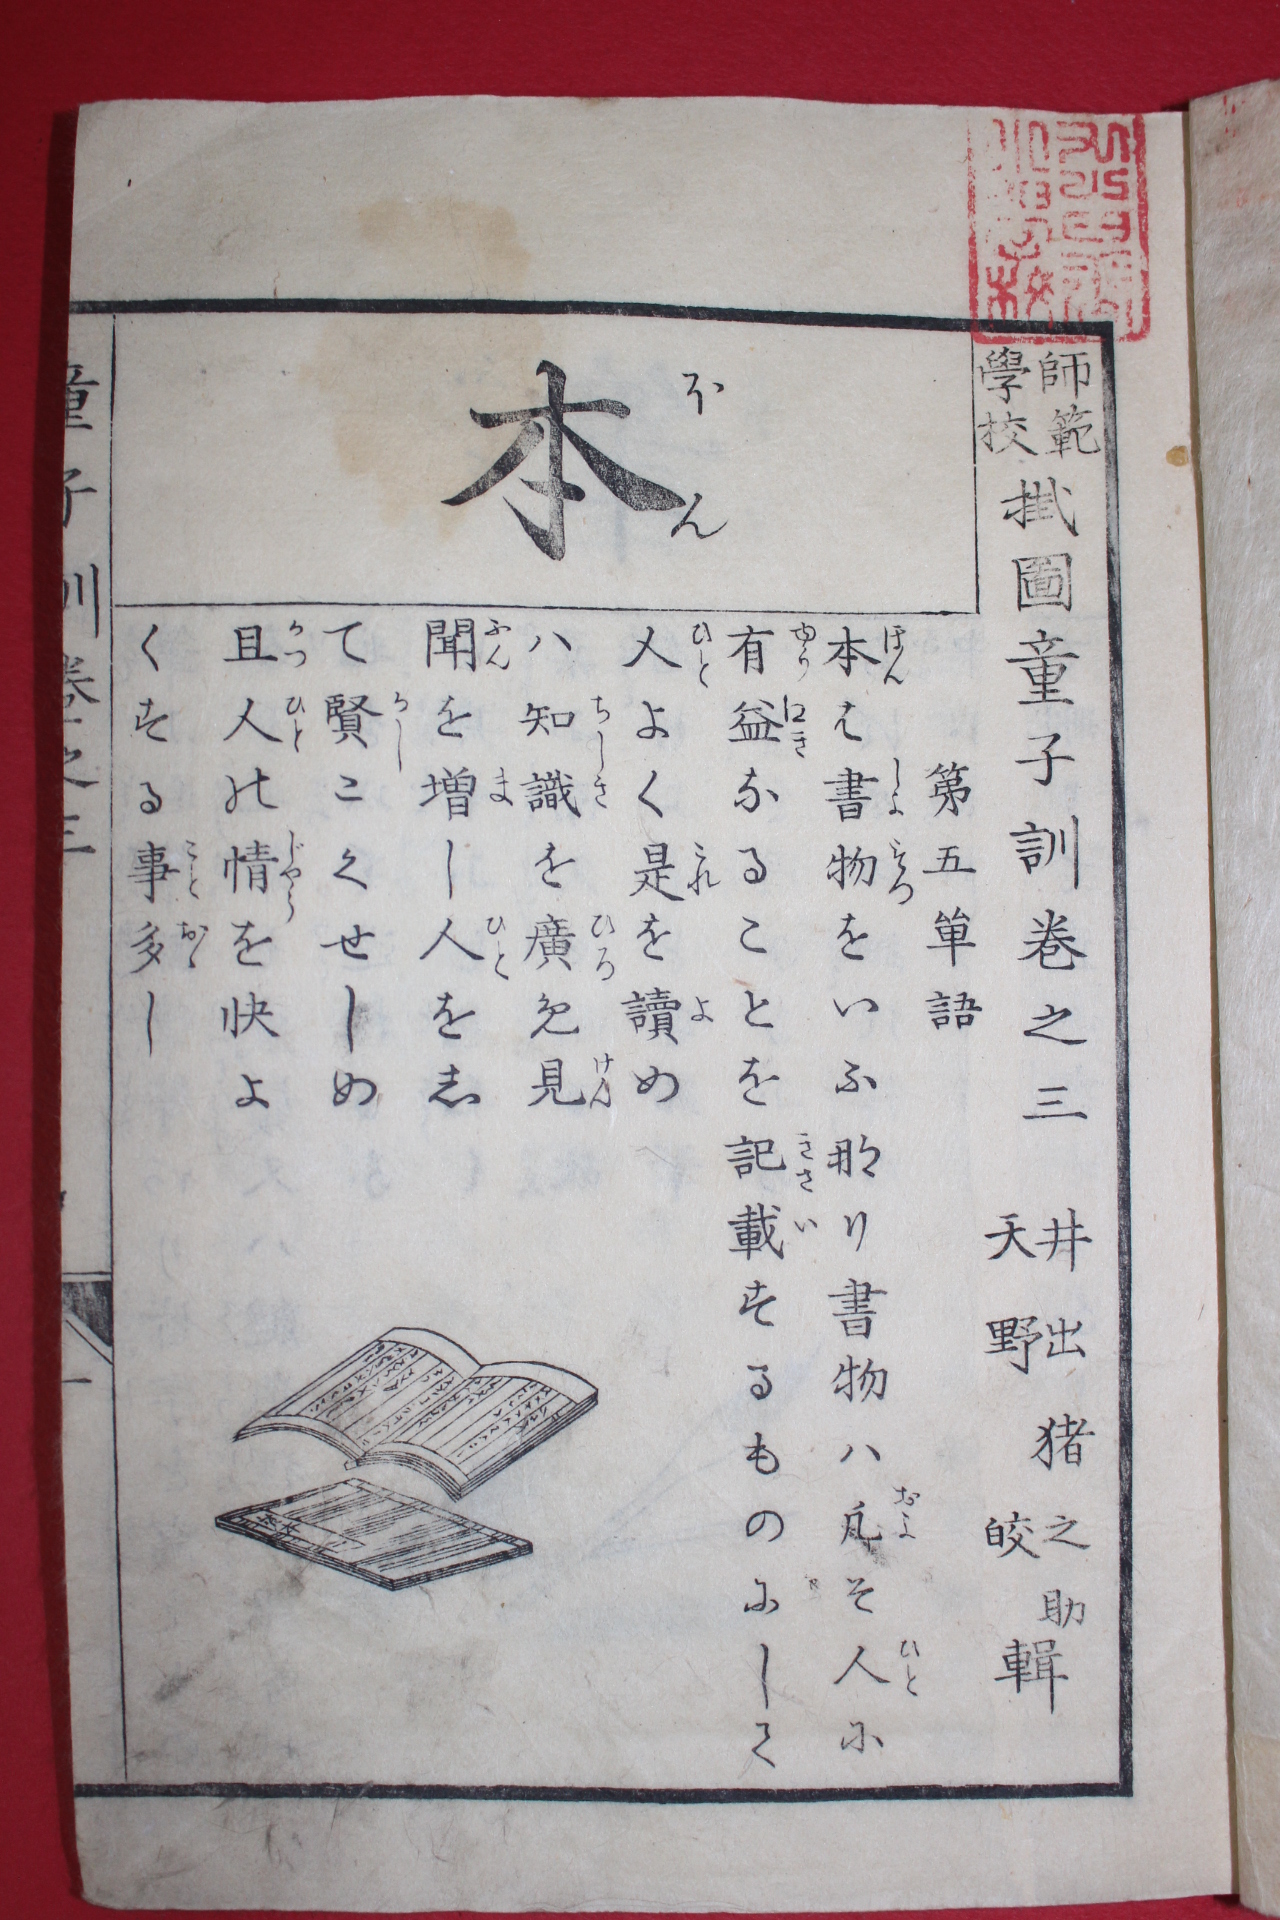 師範學校掛圖童子訓卷之三
井出猪之助
天野皎
輯
第五単語
本
ほん
本は書物をいふ那り書物ハ凡そ人に
有益なることを記載するものにして
人よく是を讀め
ハ知識を廣免見
聞を増し人をし
て賢こくせしめ
且人の情を快よ
くする事多し
童子訓卷之三
一